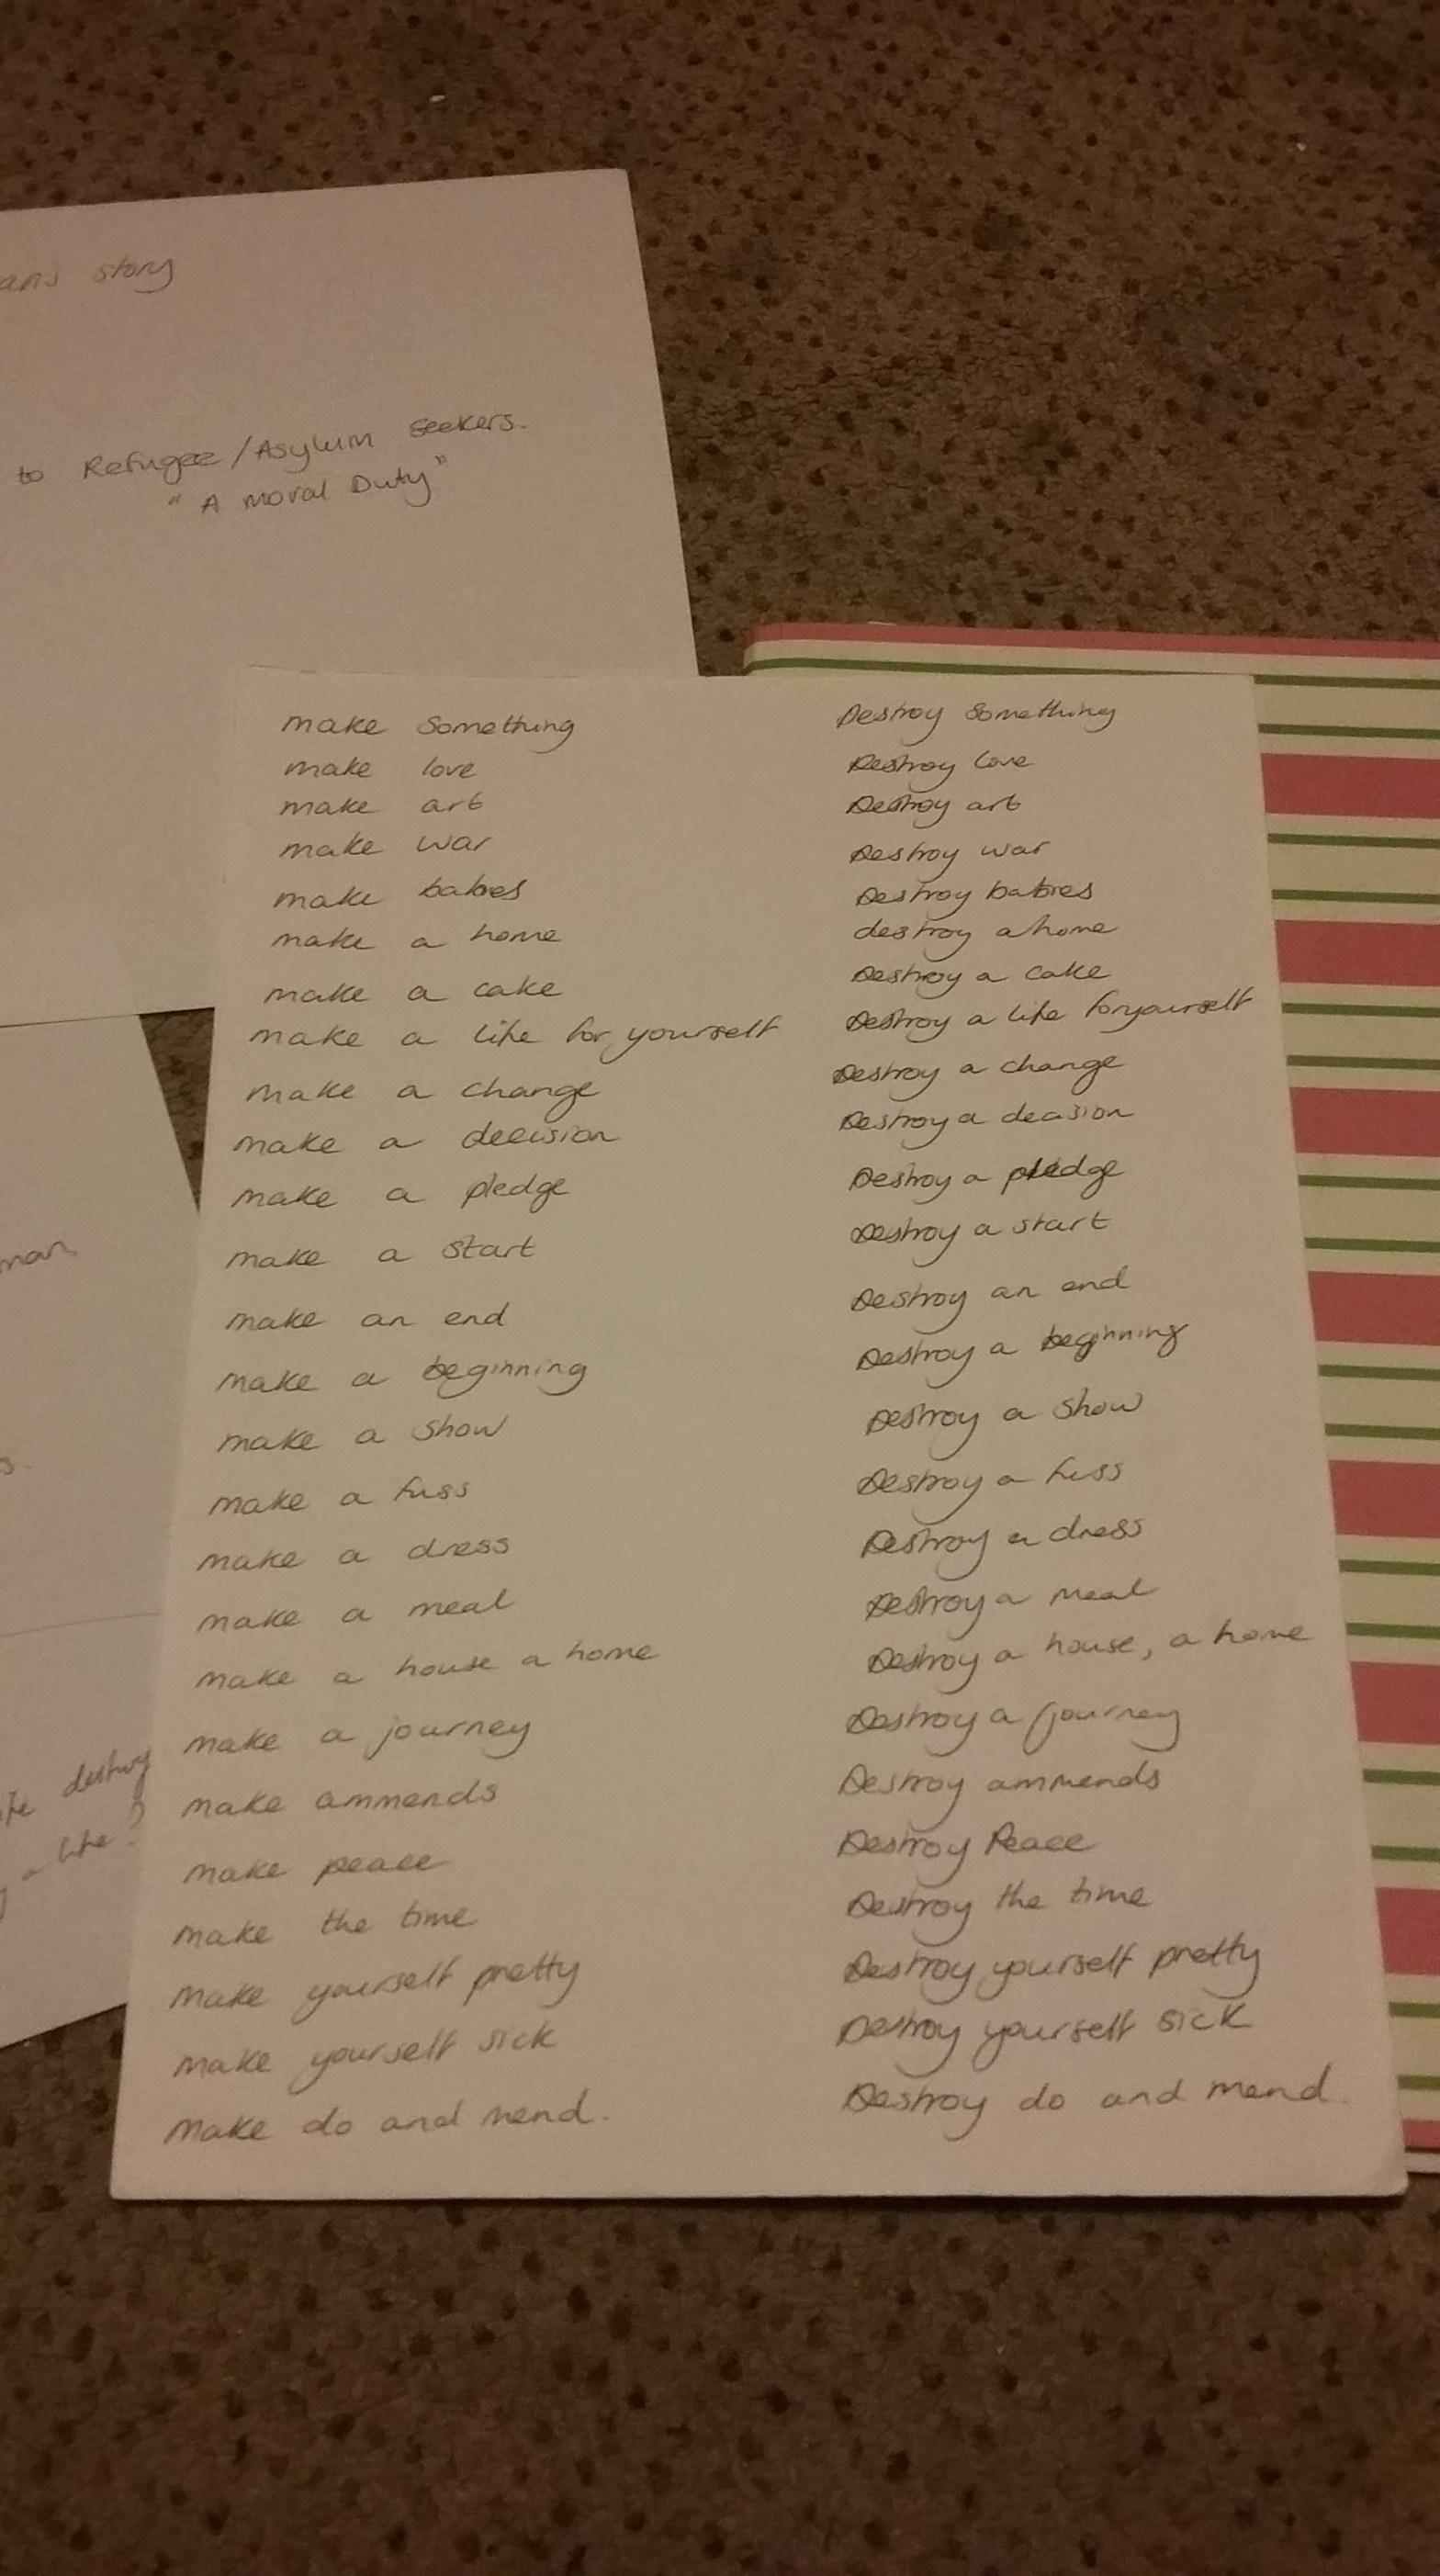 story
to Refugee/Asylum Seekers.
"A Moral Duty"
make something
make love
make art
make war
make babies
make a home
make a cake
make a life for yourself
make a change
make a decision
make a pledge
make a start
make an end
make a beginning
make a show
make a fuss
make a dress
make a meal
make a house a home
make a journey
make ammends
make peace
make the time
make yourself pretty
make yourself sick
Make do and mend.
Destroy something
Destroy love
Destroy art
Destroy war
Destroy babies
destroy a home
Destroy a cake
Destroy a life for yourself
Destroy a change
Destroy a decision
Destroy a pledge
Destroy a start
Destroy an end
Destroy a beginning
Destroy a show
Destroy a fuss
Destroy a dress
Destroy a meal
Destroy a house, a home
Destroy a journey
Destroy ammends
Destroy Peace
Destroy the time
Destroy yourself pretty
Destroy yourself sick
Destroy do and mend.
a life?